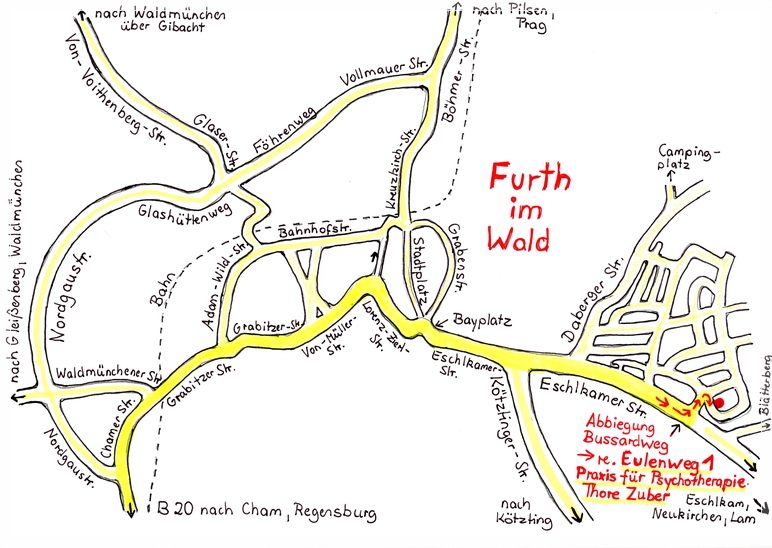 nach Waldmünchen
über Gibacht
nach Pilsen,
Prag
Von-Voithenberg-Str.
Glaser-Str.
Föhrenweg
Vollmauer Str.
Böhmer-Str.
Kreuzkirch-Str.
Furth
im
Wald
Camping-
platz
nach Gleißenberg, Waldmünchen
Glashüttenweg
Nordgaustr.
Bahn
Bahnhofstr.
Adam-Wild-Str.
Stadtplatz
Grabenstr.
Bayplatz
Daberger Str.
Grabitzer-Str.
Von-Müller-
Str.
Lorenz-Zierl-
Str.
Eschlkamer-
Str.
Waldmünchener Str.
Grabitzer Str.
Chamer Str.
Nordgaustr.
Kötztinger-Str.
Eschlkamer Str.
Blätterberg
Abbiegung
Bussardweg
→ re. Eulenweg 1
Praxis für Psychotherapie
Thore Zuber
Eschlkam,
Neukirchen, Lam
nach
Kötzting
B 20 nach Cham, Regensburg